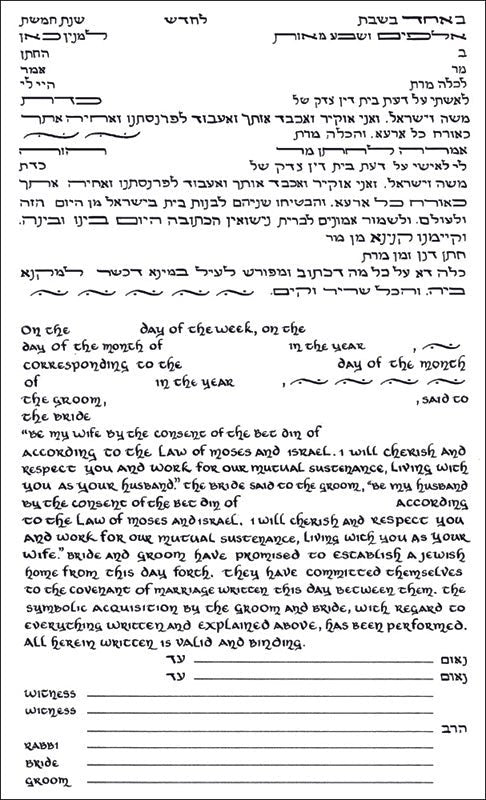 באחד בשבת לחדש שנת חמשת
אלפים ושבע מאות למנין כאן
ב החתן
מר אמר
לכלה מרת היי לי
לאשתי על דעת בית דין צדק של כדת
משה וישראל. ואני אוקיר ואכבד אותך ואעבוד לפרנסתנו ואחיה אתך
כאורח כל ארעא. והכלה מרת
אמרה לחתן מר הורה
לי לאישי על דעת בית דין צדק של כדת
משה וישראל. ואני אוקיר ואכבד אותך ואעבוד לפרנסתנו ואחיה אתך
כאורח כל ארעא. והבטיחו שניהם לבנות בית בישראל מן היום הזה
ולעולם. ולשמור אמונים לברית נישואין הכתובה היום בינו ובינה.
וקיימנו קנינא מן מר
חתן דנן ומן מרת
כלה דא על כל מה דכתוב ומפורש לעיל במינא דכשר למקנא
ביה. והכל שריר וקים.
On the day of the week, on the
day of the month of in the year ,
corresponding to the day of the month
of in the year ,
the groom, , said to
the bride
"Be my wife by the consent of the Bet din of
according to the law of Moses and Israel. I will cherish and
respect you and work for our mutual sustenance, living with
you as your husband." The bride said to the groom, "Be my husband
by the consent of the Bet din of according
to the law of Moses and Israel. I will cherish and respect you
and work for our mutual sustenance, living with you as your
wife." Bride and groom have promised to establish a Jewish
home from this day forth. They have committed themselves
to the covenant of marriage written this day between them. The
symbolic acquisition by the groom and bride, with regard to
everything written and explained above, has been performed.
All herein written is valid and binding.
נאום עד
נאום עד
Witness
Witness
הרב
Rabbi
Bride
Groom